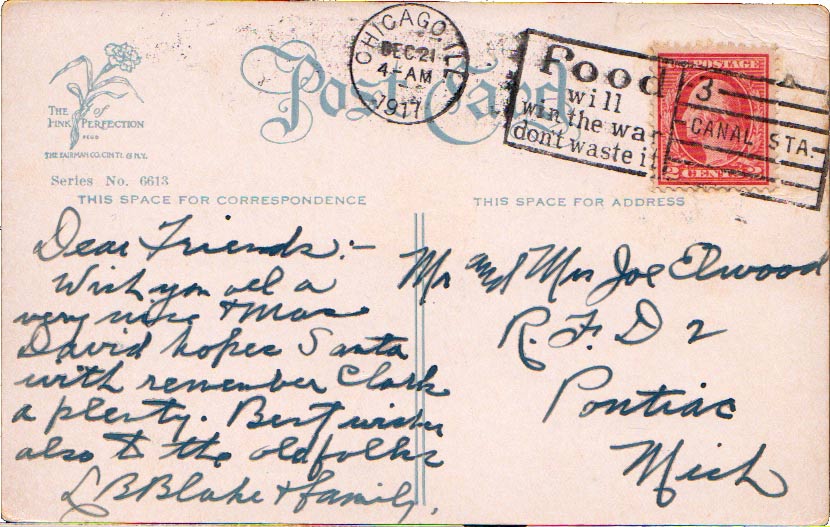 CHICAGO, ILL.
DEC 21
4-AM
1917
Food
will
win the war
don't waste it
3
CANAL STA.
POSTAGE
2 CENTS 2
Post Card
THE PINK of PERFECTION
REGD
THE FAIRMAN CO. CIN'TI. & N.Y.
Series No. 6613
THIS SPACE FOR CORRESPONDENCE
THIS SPACE FOR ADDRESS
Dear Friends:-
Wish you all a
very nice Xmas
David hopes Santa
with remember Clark
a plenty. Best wishes
also to the old folks
L B Blake & family.
Mr and Mrs Joe Elwood
R. F. D 2
Pontiac
Mich